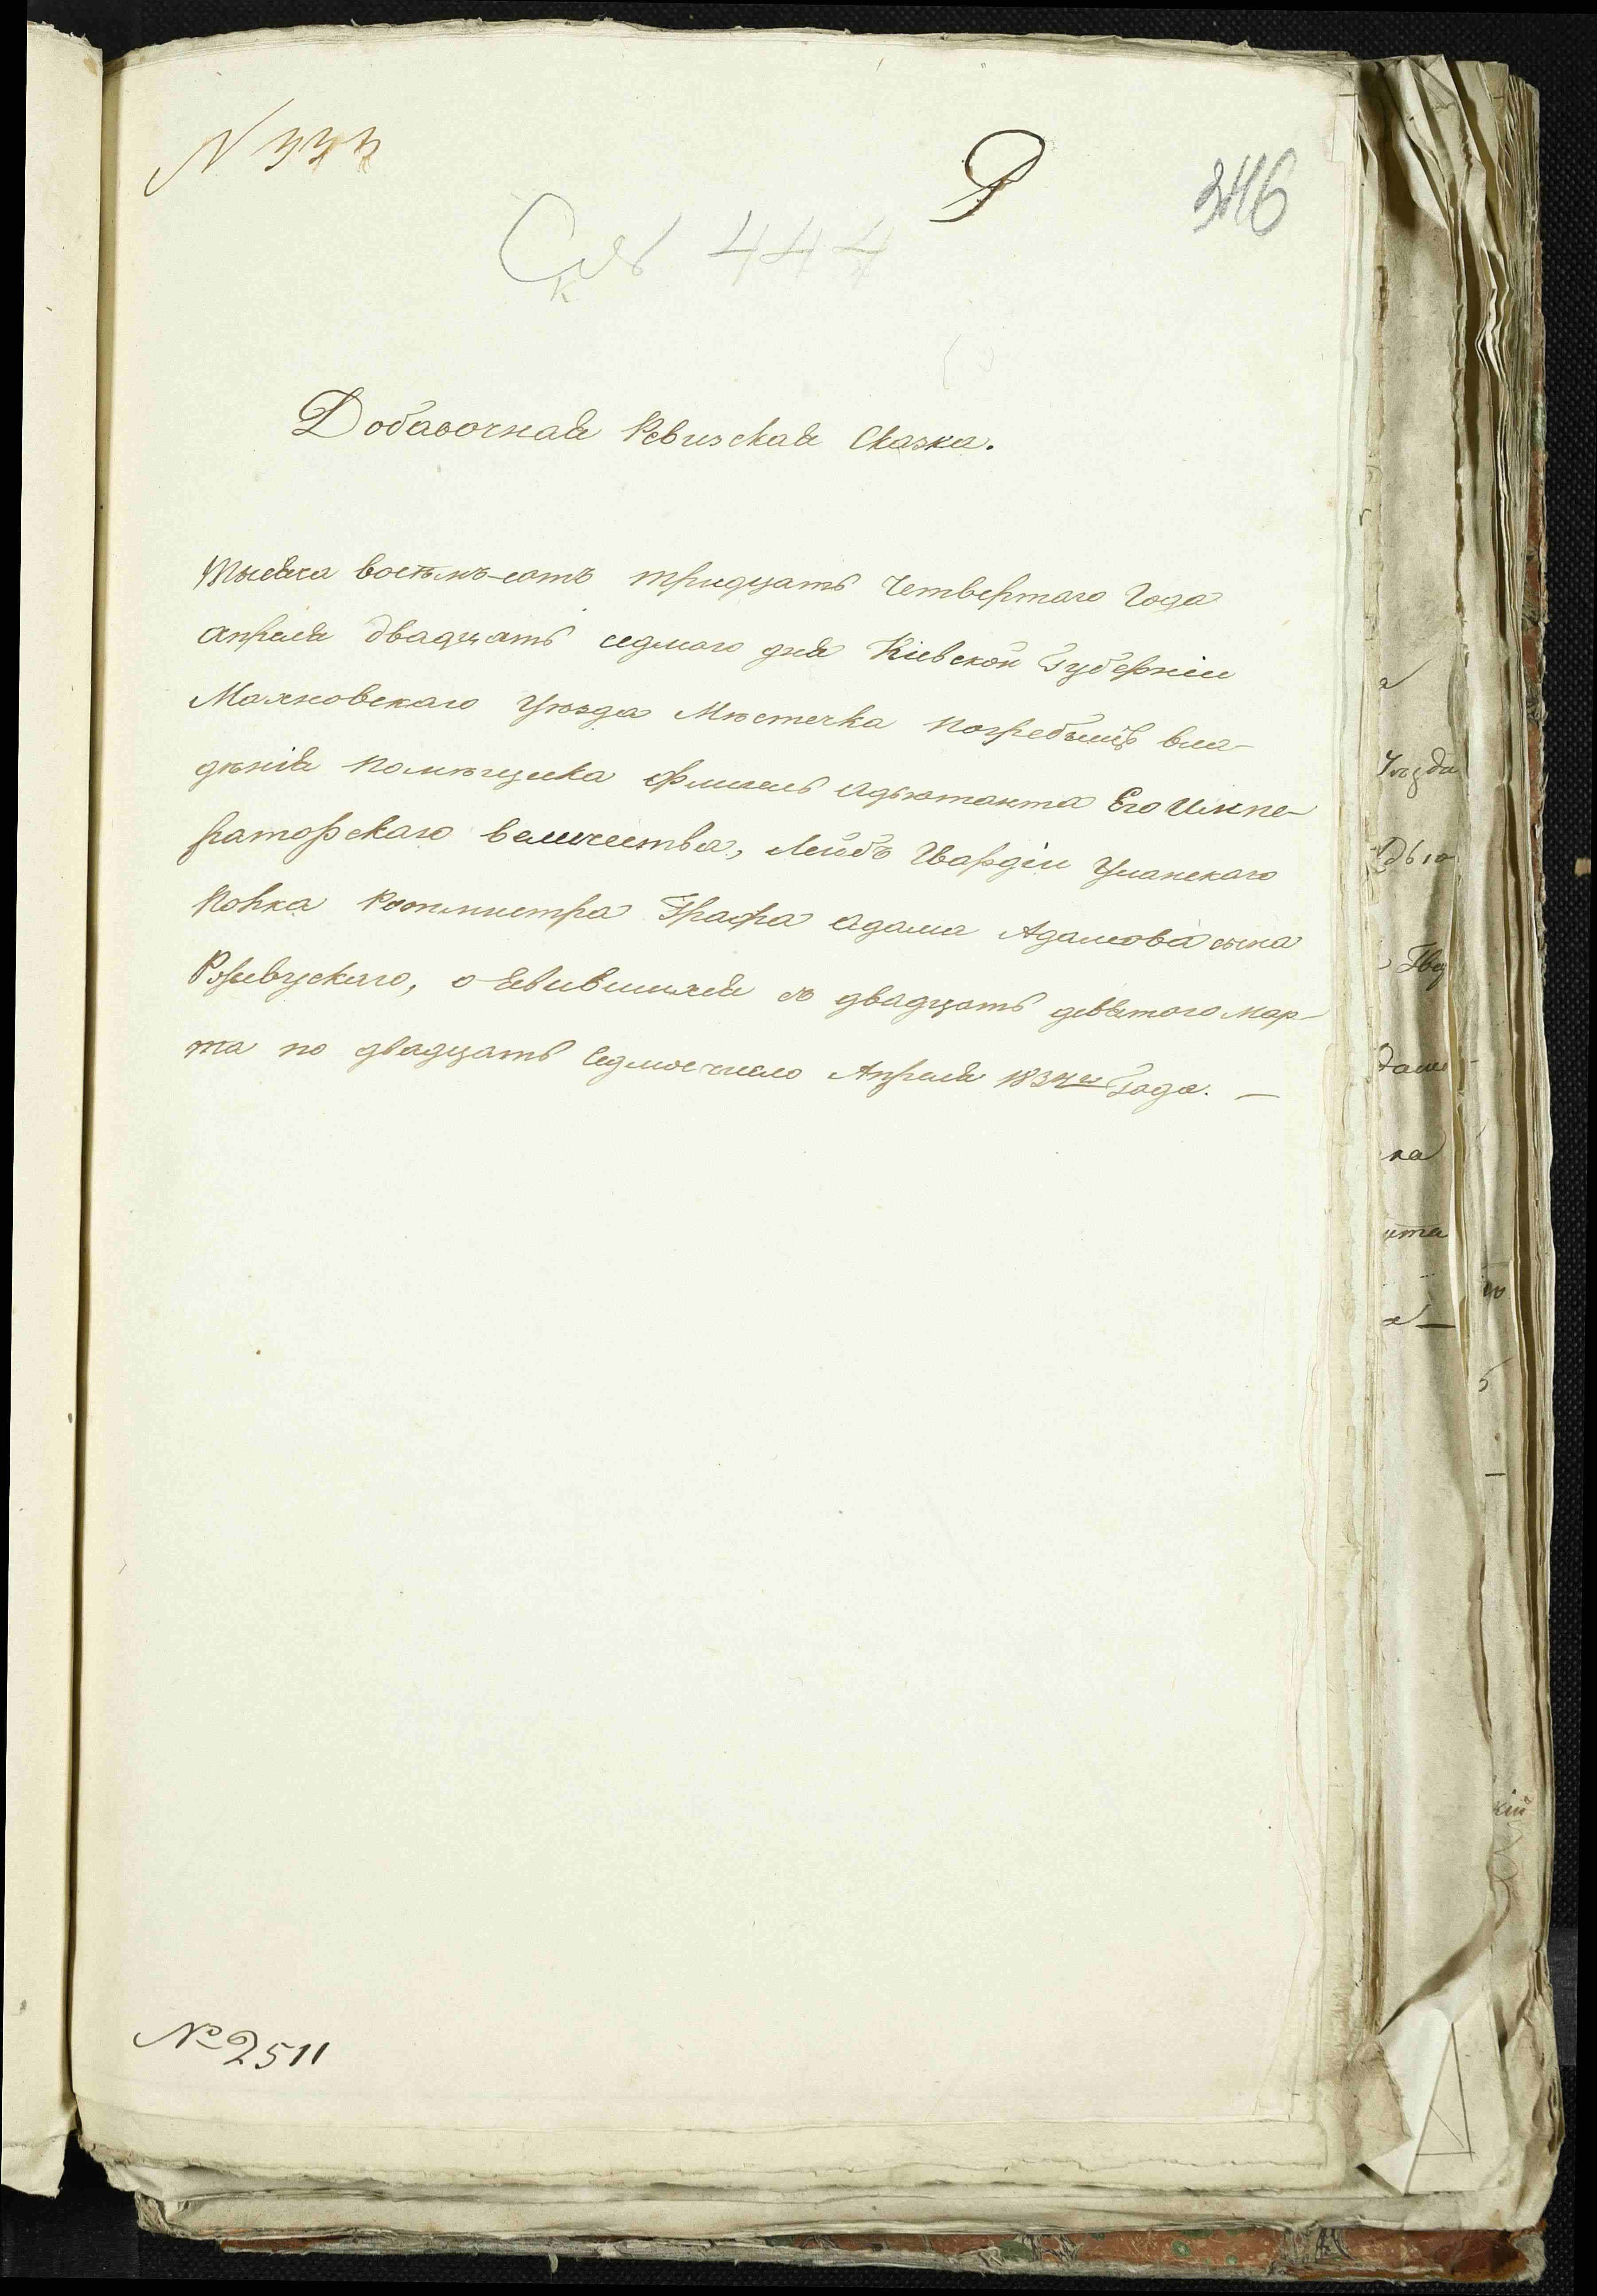 N 333
Р
346
Ск № 444
Добавочная Ревизская Сказка.
Тысяча восемь-сотъ тридцать Четвертаго Года
апреля двадцать седмаго дня Кіевской Губерніи
Махновскаго Уѣзда Мѣстечка Погребищъ вла-
дѣнія помѣщика Флигель адьютанта Его Импе-
раторскаго величества, Лейбъ Гвардіи Уланскаго
Полка Ротмистра Графа Адама Адамова сына
Ржевускаго, о явившихся съ двадцать девятого Мар-
та по двадцать Седмое число Апреля 1834го Года. —
№ 2511